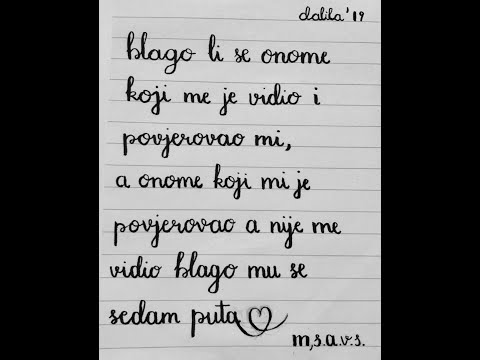 dalila '19
blago li se onome
koji me je vidio i
povjerovao mi,
a onome koji mi je
povjerovao a nije me
vidio blago mu se
sedam puta
m,s.a.v.s.